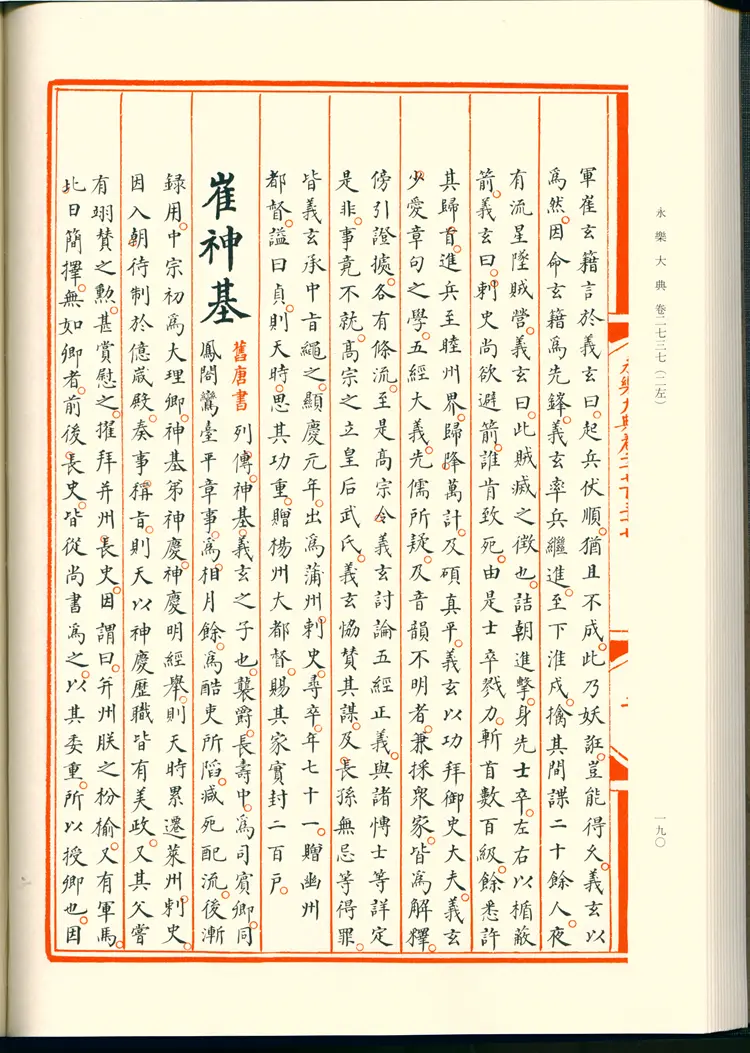 永樂大典 卷二七三七(二左)
一九〇
軍崔玄籍言於義玄曰起兵伏順猶且不成此乃妖誑豈能得久義玄以
爲然因命玄籍爲先鋒義玄率兵繼進至下淮戍擒其間諜二十餘人夜
有流星墜賊營義玄曰此賊滅之徵也詰朝進擊身先士卒左右以楯蔽
箭義玄曰刺史尚欲避箭誰肯致死由是士卒戮力斬首數百級餘悉許
其歸首進兵至睦州界歸降萬計及碩真平義玄以功拜御史大夫義玄
少愛章句之學五經大義先儒所疑及音韻不明者兼採衆家皆爲解釋
傍引證據各有條流至是高宗令義玄討論五經正義與諸博士等詳定
是非事竟不就高宗之立皇后武氏義玄協贊其謀及長孫無忌等得罪
皆義玄承中旨繩之顯慶元年出爲蒲州刺史尋卒年七十一贈幽州
都督謚曰貞則天時思其功重贈楊州大都督賜其家實封二百戶
崔神基
舊唐書列傳神基義玄之子也襲爵長壽中爲司賓卿同
鳳閣鸞臺平章事爲相月餘爲酷吏所陷減死配流後漸
錄用中宗初爲大理卿神基弟神慶神慶明經舉則天時累遷萊州刺史
因入朝待制於億歲殿奏事稱旨則天以神慶歷職皆有美政又其父嘗
有翊贊之勲甚賞慰之擢拜并州長史因謂曰并州朕之枌榆又有軍馬
比日簡擇無如卿者前後長史皆從尚書爲之以其委重所以授卿也因